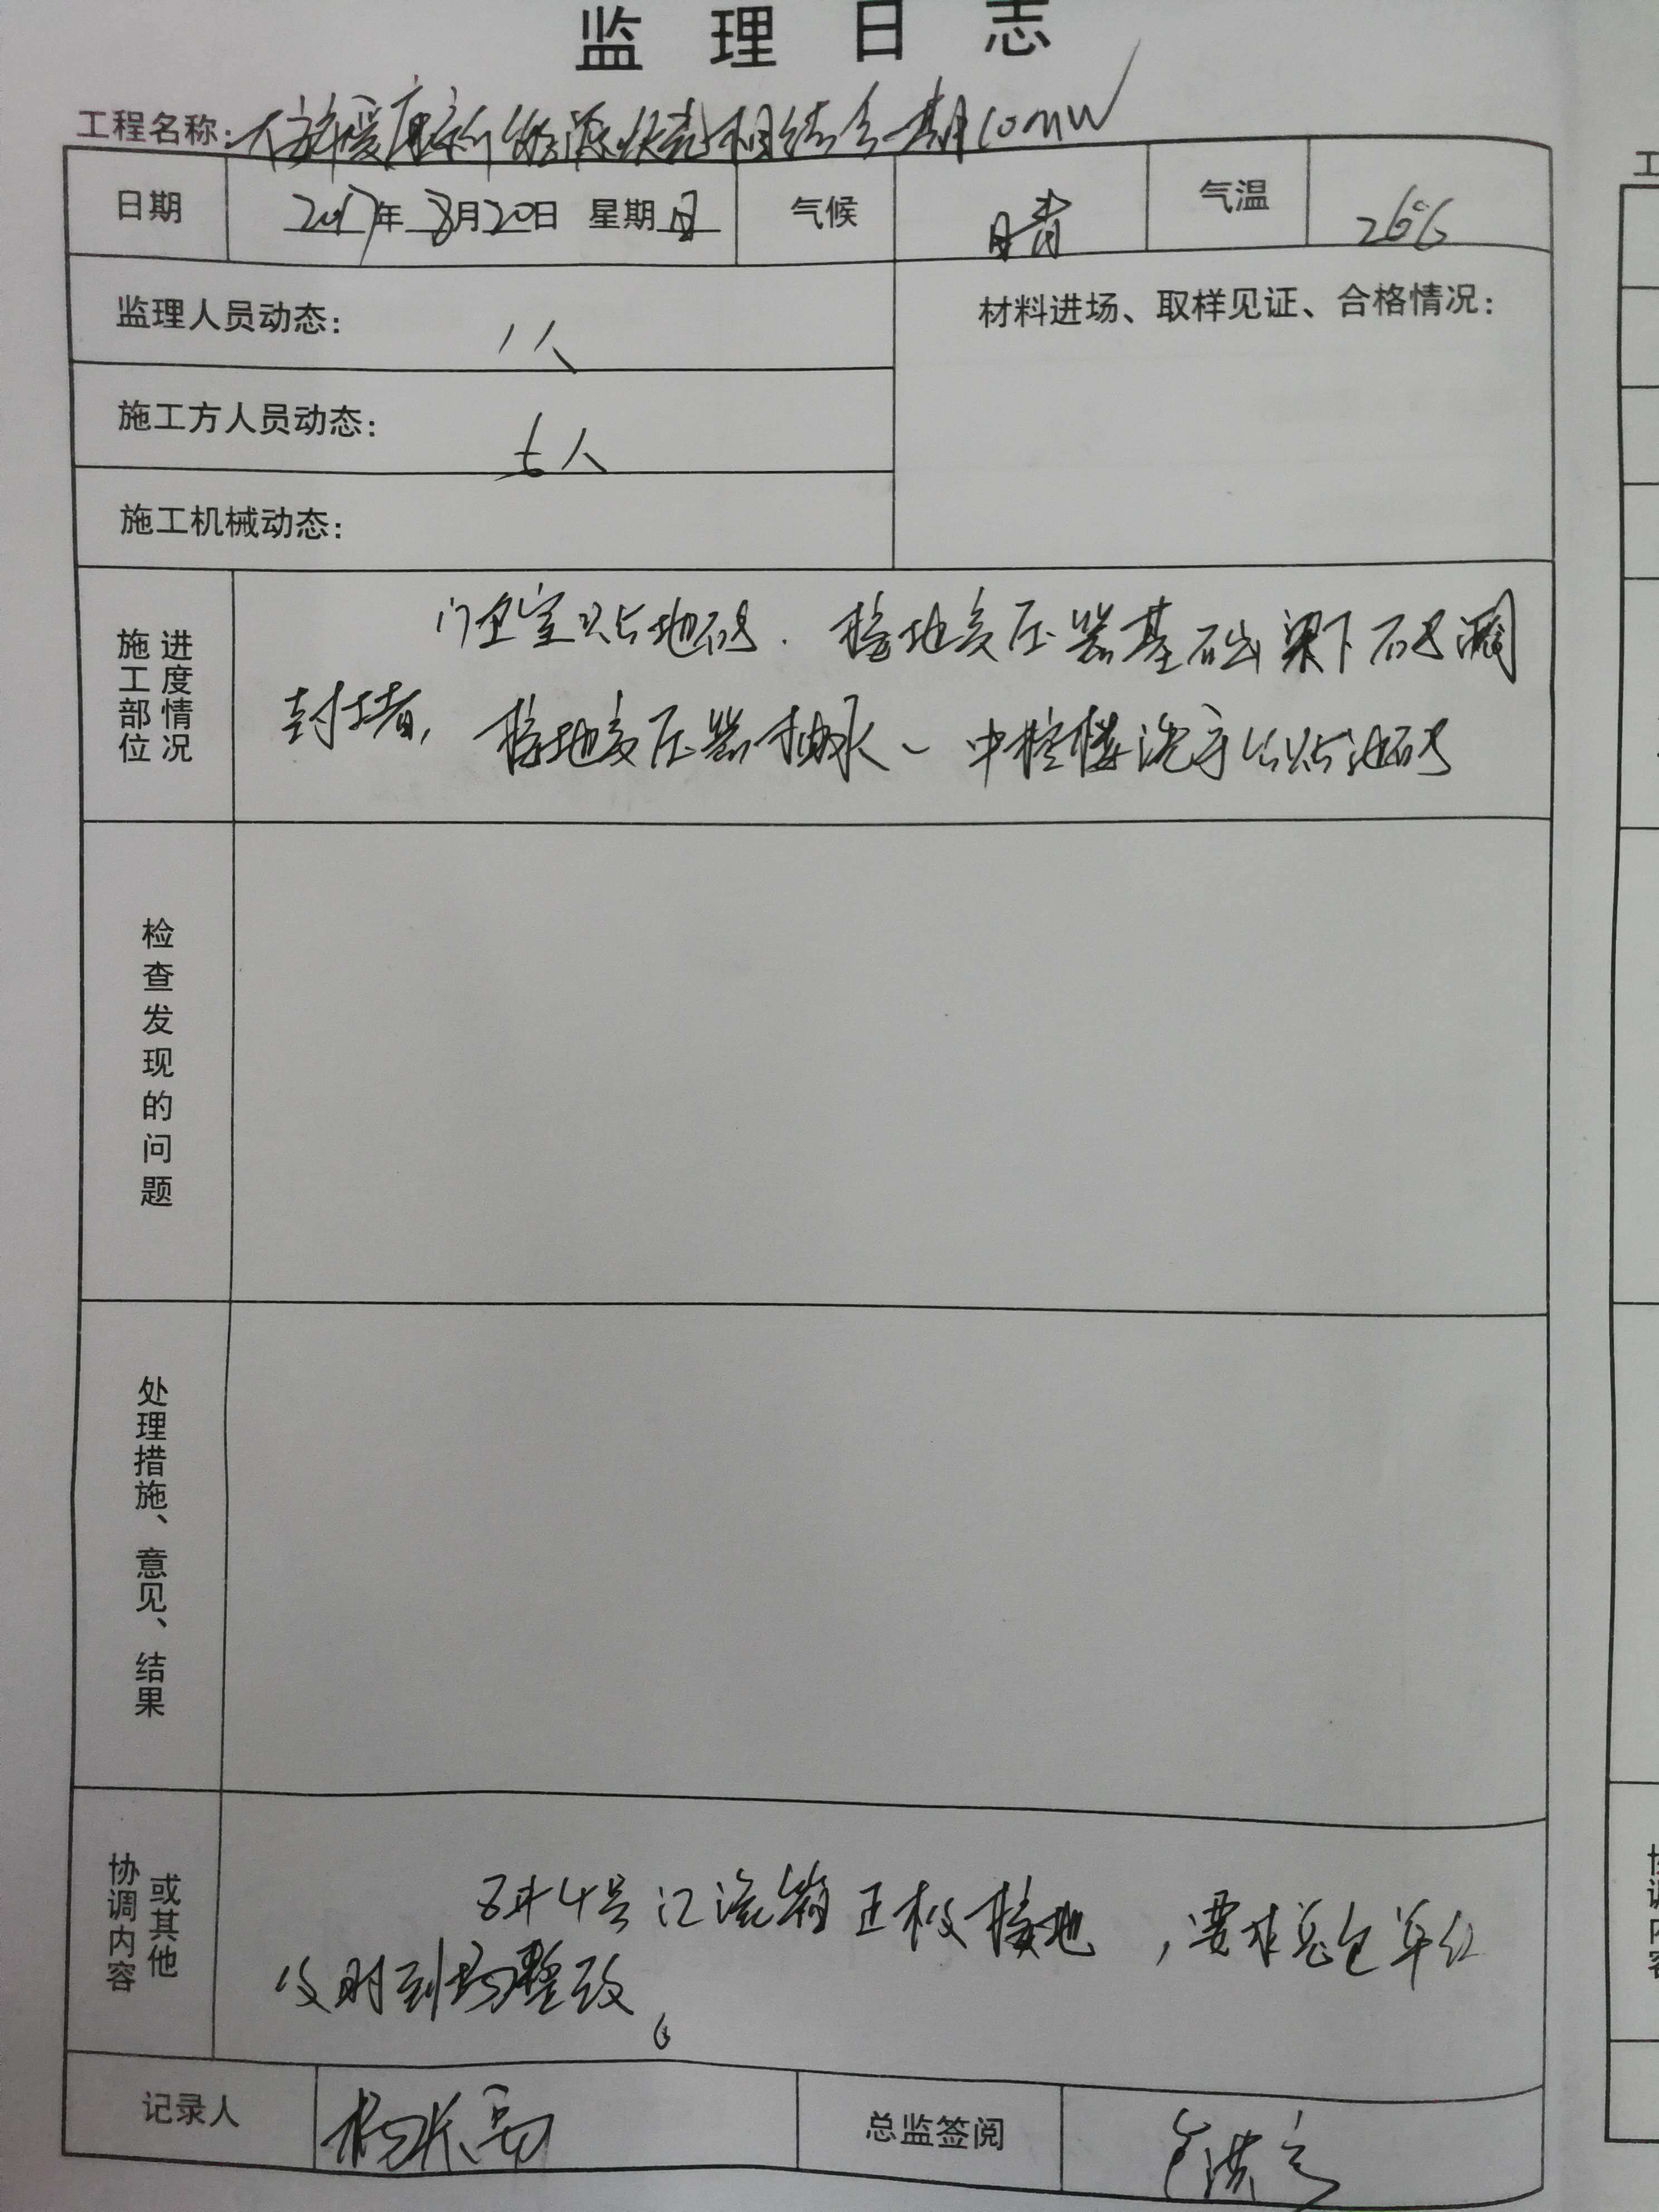 监理日志
工程名称: 新能源 相结合一期10MW
日期 2017年8月20日 星期日 气候 晴 气温 26℃
监理人员动态: 1人 材料进场、取样见证、合格情况:
施工方人员动态: 七人
施工机械动态:
施工部位 进度情况
门卫室贴地砖. 接地变压器基础梁下砖洞
封堵, 接地变压器抽水、中控楼洗手台贴地砖
检查发现的问题
处理措施、意见、结果
协调内容 或其他
4号汇流箱正极接地,要求总包单位
及时到场整改。
记录人 总监签阅
工